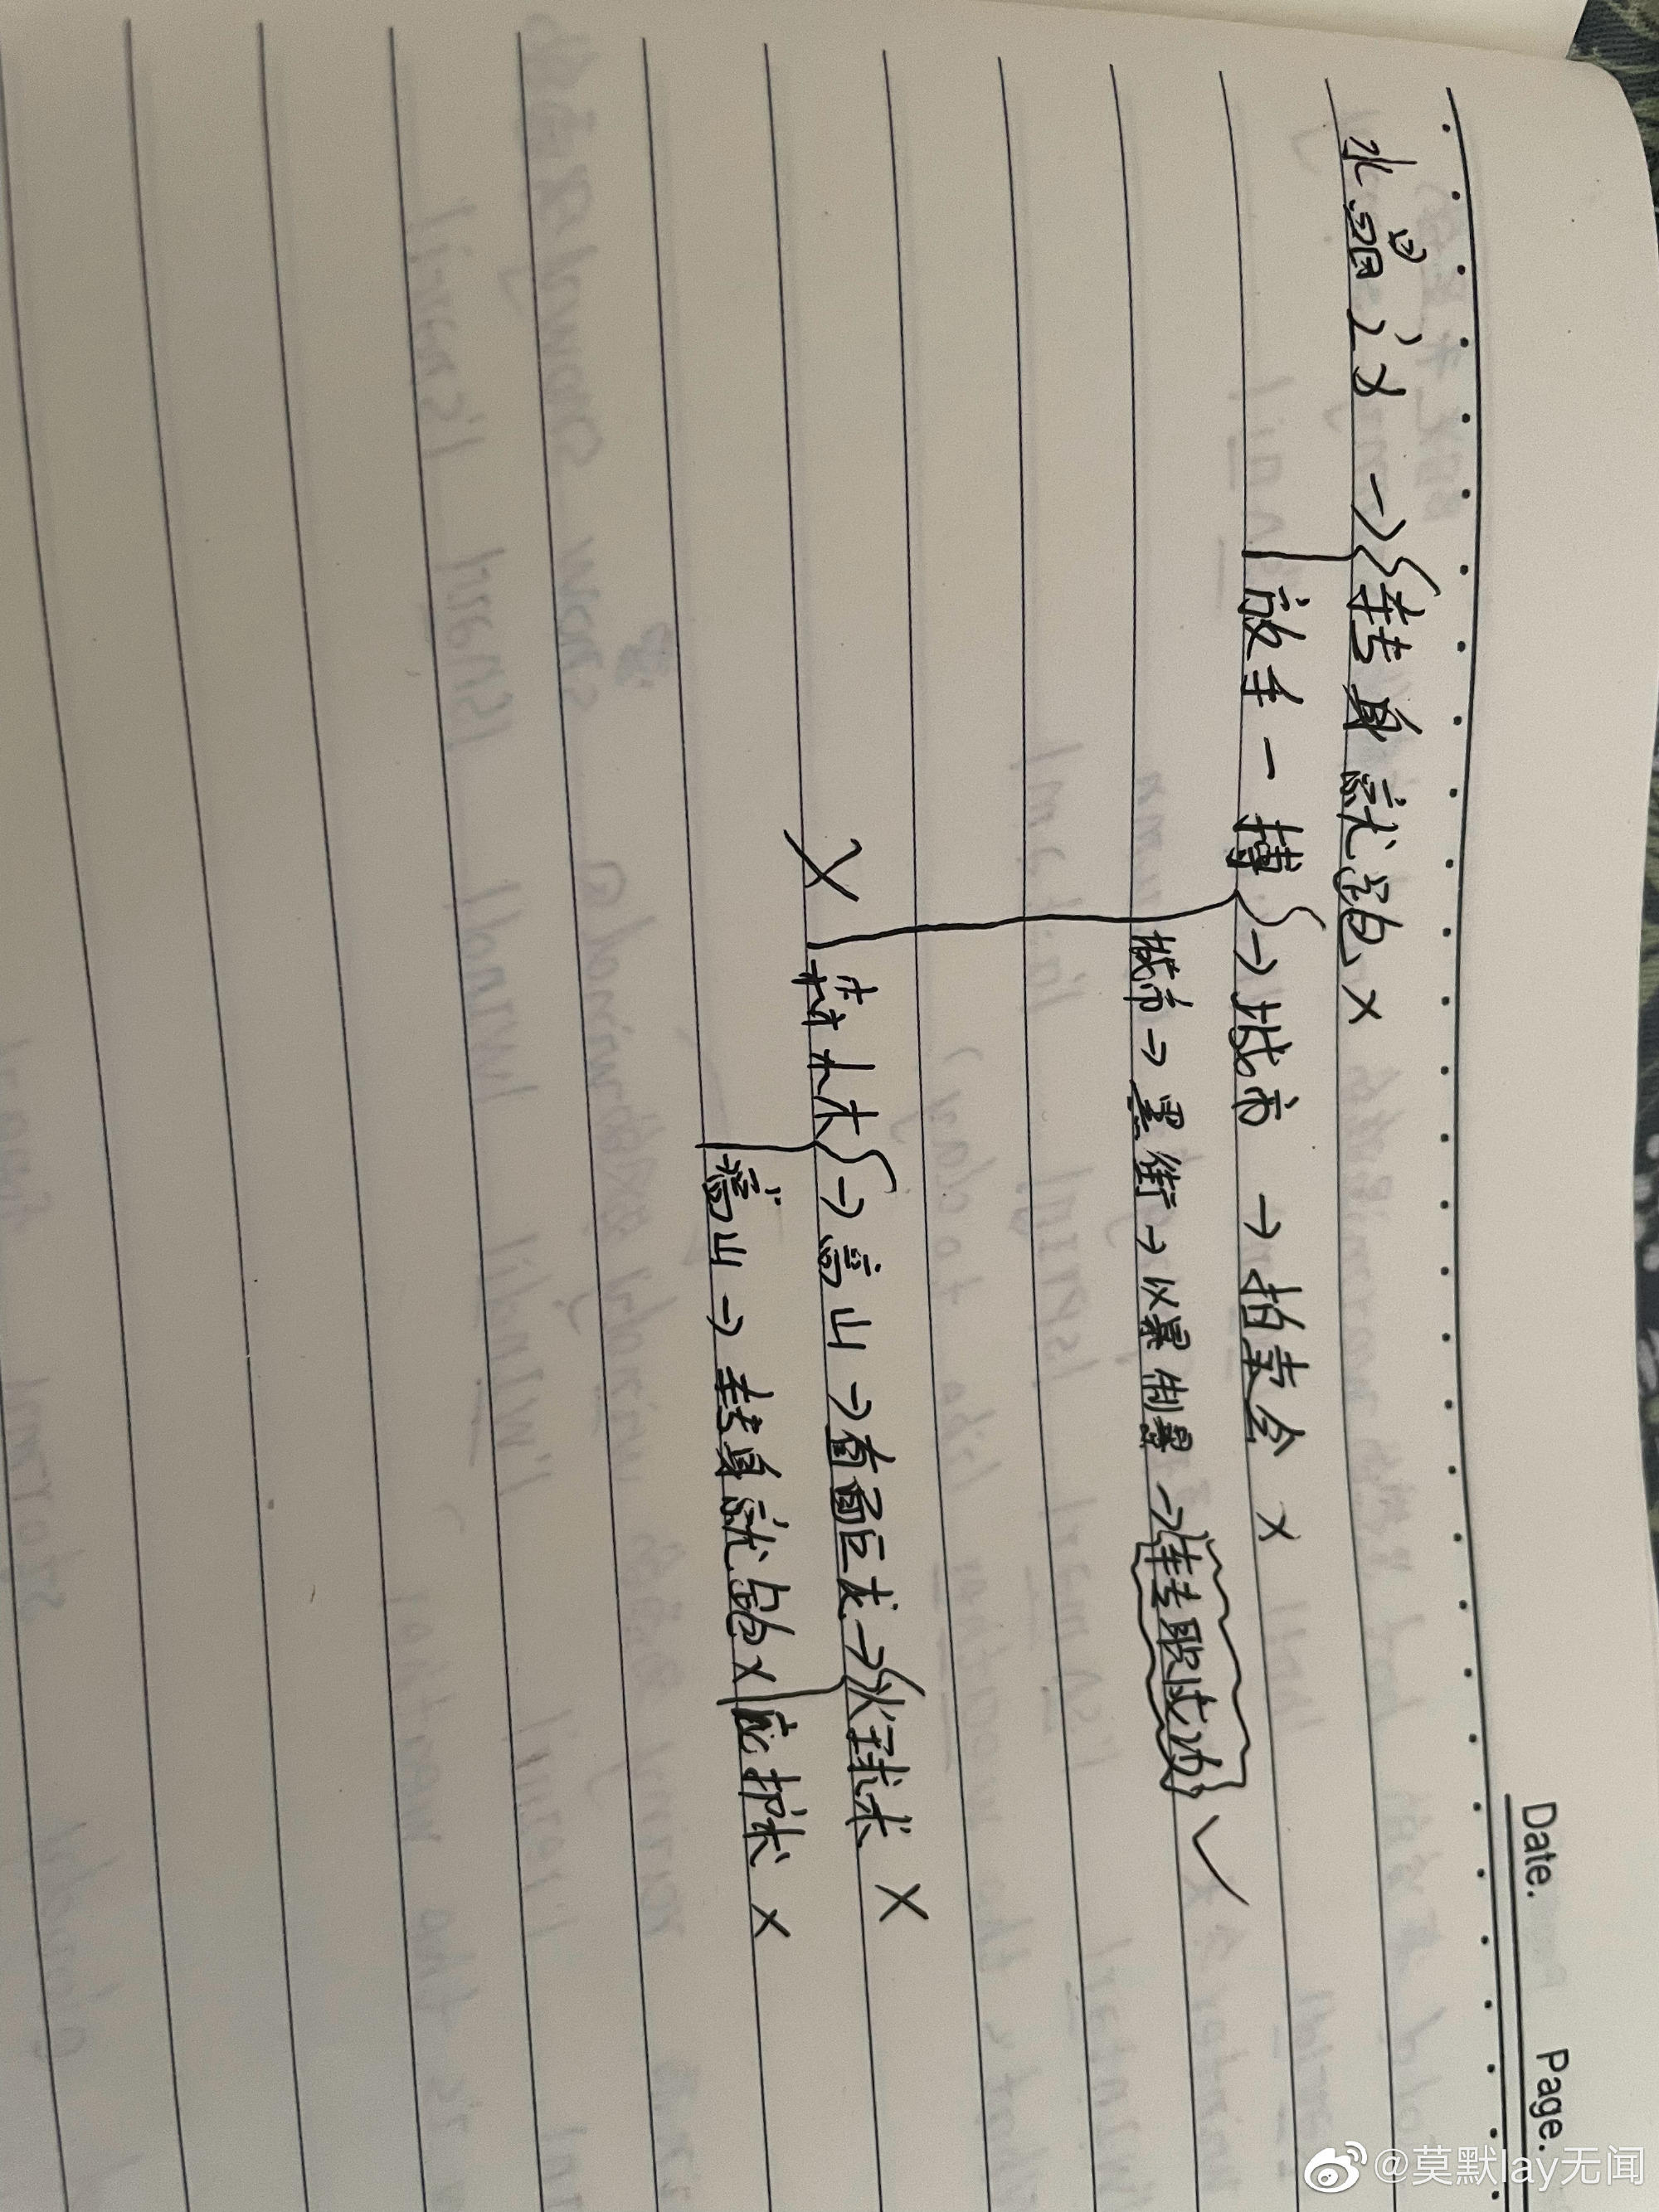 Date.
Page.
水晶 2 X → 转身就跑 X
放手一搏 → 城市 → 拍卖会 X
城市 → 黑街 → 以暴制暴 → 转职成功 ✓
X 林 → 高山 → 直面巨龙 → 火球术 X
高山 → 转身就跑 X 庇护术 X
@莫默lay无闻